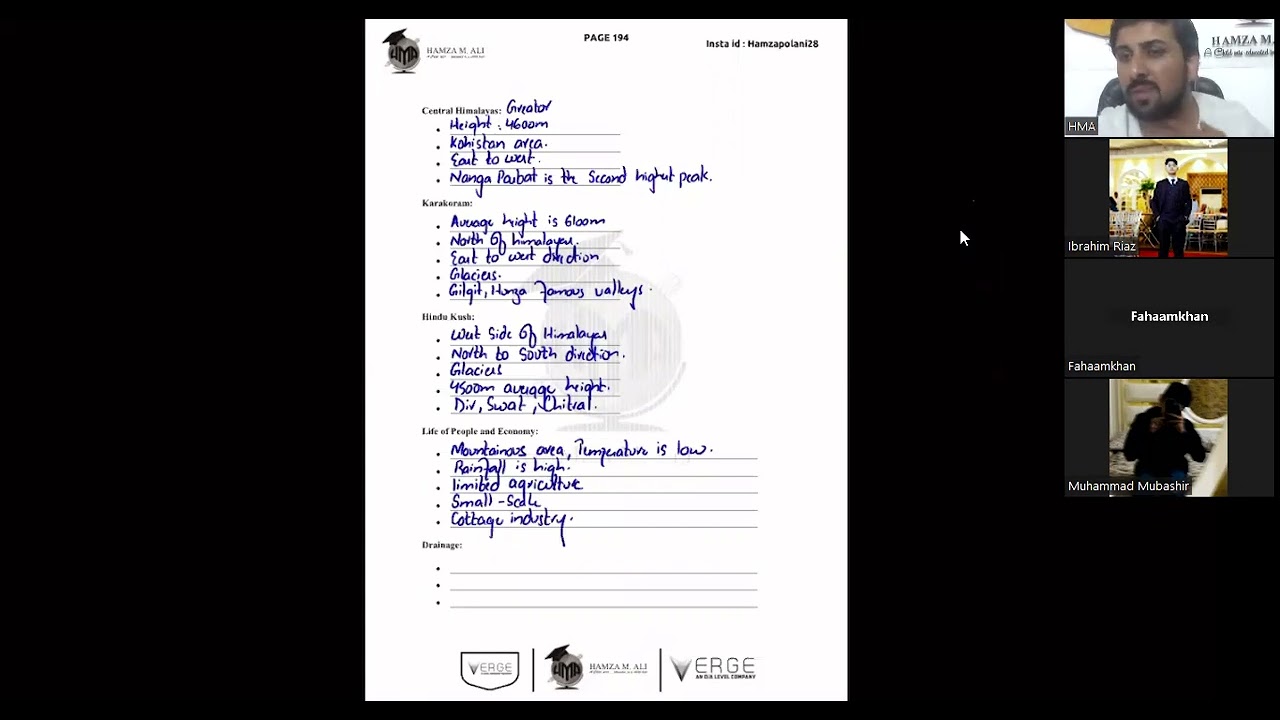 PAGE 194
HAMZA M. ALI
Insta id : Hamzapolani28
Central Himalayas: Greator
• Height : 4600m
• Kohistan area.
• East to west.
• Nanga Parbat is the Second highest peak.
Karakoram:
• Average height is 6100m
• North Of himalayas.
• East to west direction
• Glaciers.
• Gilgit, Hunza famous valleys.
Hindu Kush:
• West Side Of Himalayas
• North to South direction.
• Glaciers
• 4500m average height.
• Dir, Swat, Chitral.
Life of People and Economy:
• Mountainous area, Temperature is low.
• Rainfall is high.
• limited agriculture
• Small-Scale
• Cottage industry.
Drainage:
VERGE
HMA
HAMZA M. ALI
VERGE
AN O/A LEVEL COMPANY
HAMZA M.
HMA
Ibrahim Riaz
Fahaamkhan
Fahaamkhan
Muhammad Mubashir